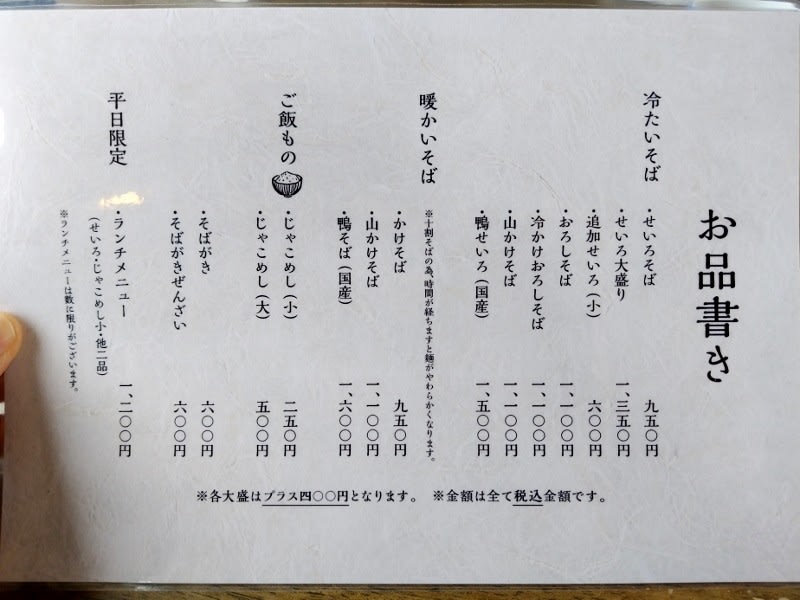 お品書き
冷たいそば
・せいろそば 九五〇円
・せいろ大盛り 一、三五〇円
・追加せいろ（小） 六〇〇円
・おろしそば 一、一〇〇円
・冷かけおろしそば 一、一〇〇円
・山かけそば 一、一〇〇円
・鴨せいろ（国産） 一、五〇〇円
暖かいそば
※十割そばの為、時間が経ちますと麺がやわらかくなります。
・かけそば 九五〇円
・山かけそば 一、一〇〇円
・鴨そば（国産） 一、六〇〇円
ご飯もの
・じゃこめし（小） 二五〇円
・じゃこめし（大） 五〇〇円
・そばがき 六〇〇円
・そばがきぜんざい 六〇〇円
平日限定
・ランチメニュー 一、二〇〇円
（せいろ・じゃこめし小・他二品）
※ランチメニューは数に限りがございます。
※各大盛はプラス四〇〇円となります。 ※金額は全て税込金額です。